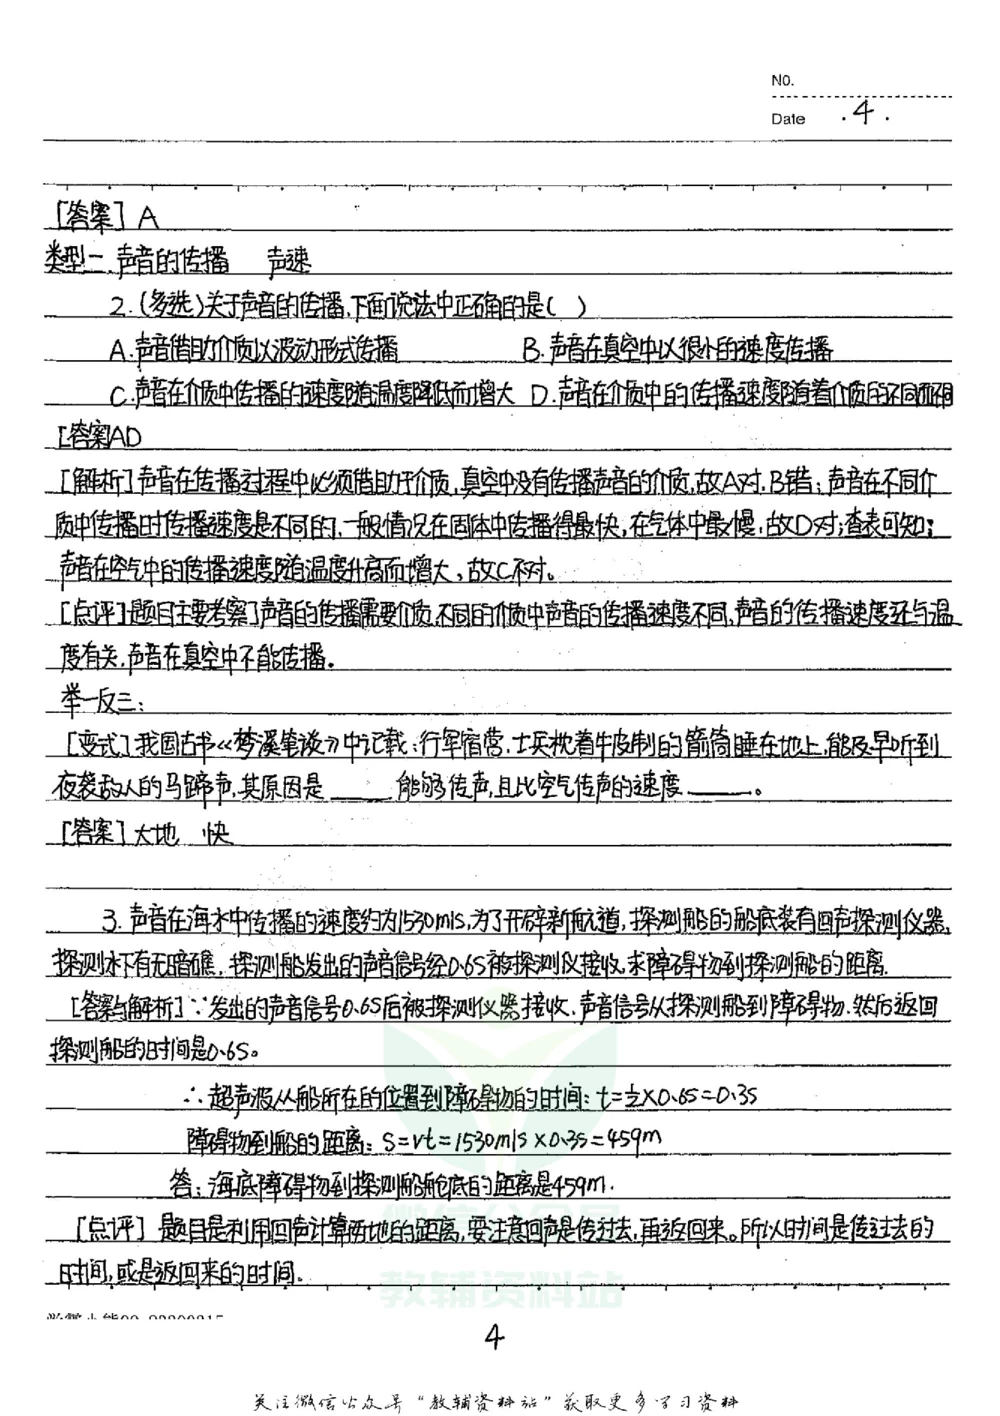 No.
Date .4.
[答案] A
类型一、声音的传播 声速
2.(多选)关于声音的传播,下面说法中正确的是( )
A.声音借助介质以波动形式传播 B.声音在真空中以很小的速度传播
C.声音在介质中传播的速度随温度降低而增大 D.声音在介质中的传播速度随着介质的不同而不同
[答案]AD
[解析]声音在传播过程中必须借助于介质,真空中没有传播声音的介质,故A对.B错;声音在不同介
质中传播时传播速度是不同的,一般情况在固体中传播得最快,在气体中最慢,故D对;查表可知;
声音在空气中的传播速度随温度升高而增大,故C不对。
[点评]题目主要考察了声音的传播需要介质,不同的介质中声音的传播速度不同,声音的传播速度还与温
度有关,声音在真空中不能传播。
举一反三:
[变式]我国古书《梦溪笔谈》中记载:行军宿营,士兵枕着牛皮制的箭筒睡在地上,能及早听到
夜袭敌人的马蹄声,其原因是____能够传声,且比空气传声的速度____。
[答案]大地 快
3.声音在海水中传播的速度约为1530m/s,为了开辟新航道,探测船的船底装有回声探测仪器,
探测水下有无暗礁,探测船发出的声音信号经0.6S被探测仪接收,求障碍物到探测船的距离.
[答案与解析]∵发出的声音信号0.6S后被探测仪器接收,声音信号从探测船到障碍物.然后返回
探测船的时间是0.6S。
∴超声波从船所在的位置到障碍物的时间:t=½×0.6S=0.3S
障碍物到船的距离:S=vt=1530m/s×0.3s=459m
答:海底障碍物到探测船舱底的距离是459m.
[点评]题目是利用回声计算两地的距离,要注意回声是传过去,再返回来。所以时间是传过去的
时间,或是返回来的时间.
微信公众号
教辅资料站
4
关注微信公众号“教辅资料站”获取更多学习资料